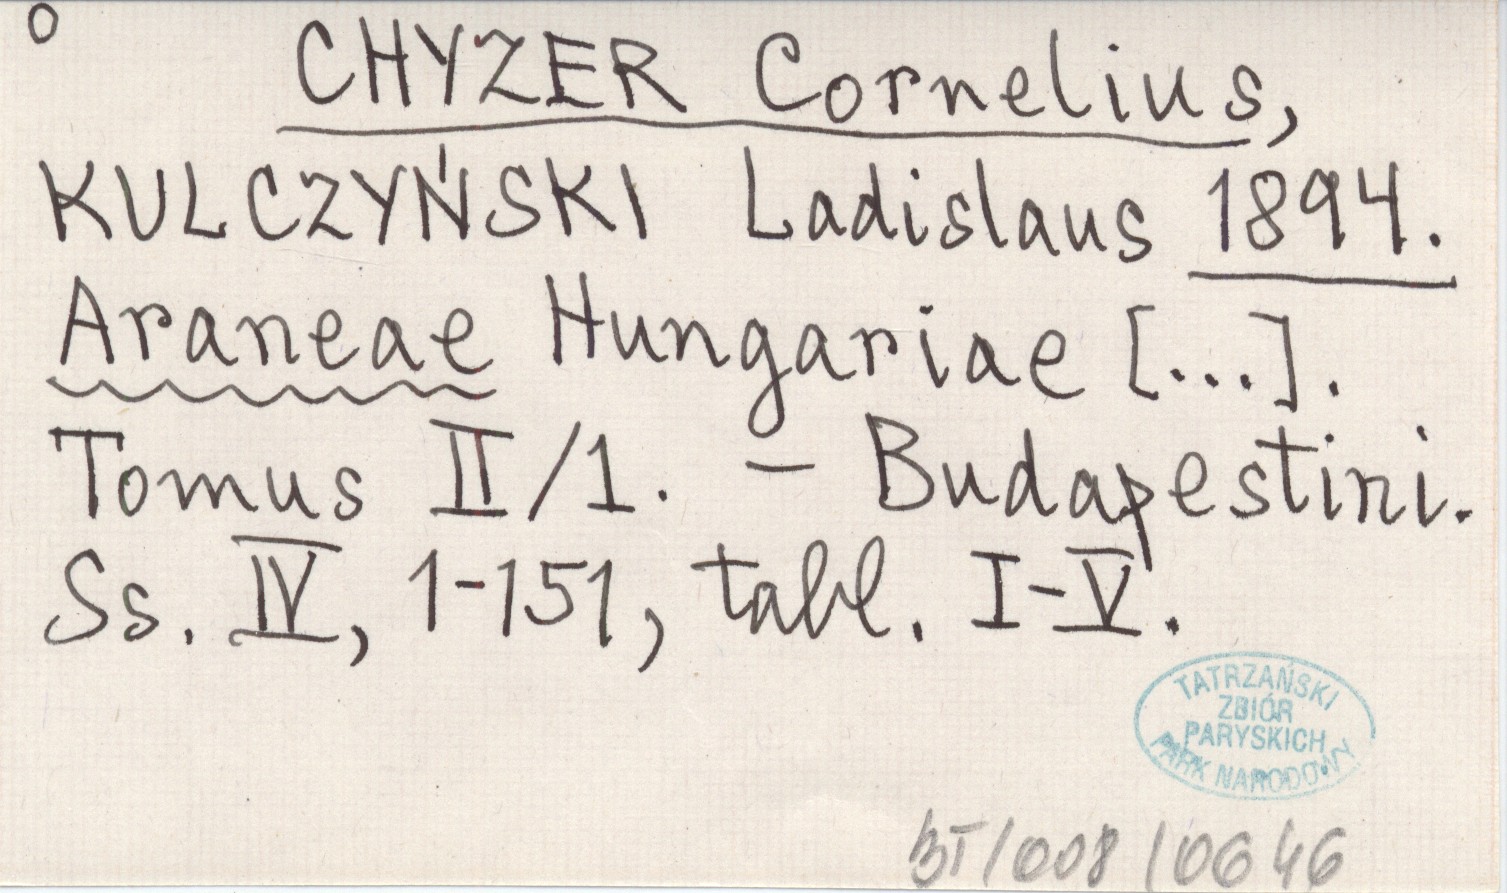 O
CHYZER Cornelius,
KULCZYŃSKI Ladislaus 1894.
Araneae Hungariae [...].
Tomus II/1. – Budapestini.
Ss. IV, 1-151, tabl. I-V.
TATRZAŃSKI
ZBIÓR
PARYSKICH
PARK NARODOWY
BT/008/0646